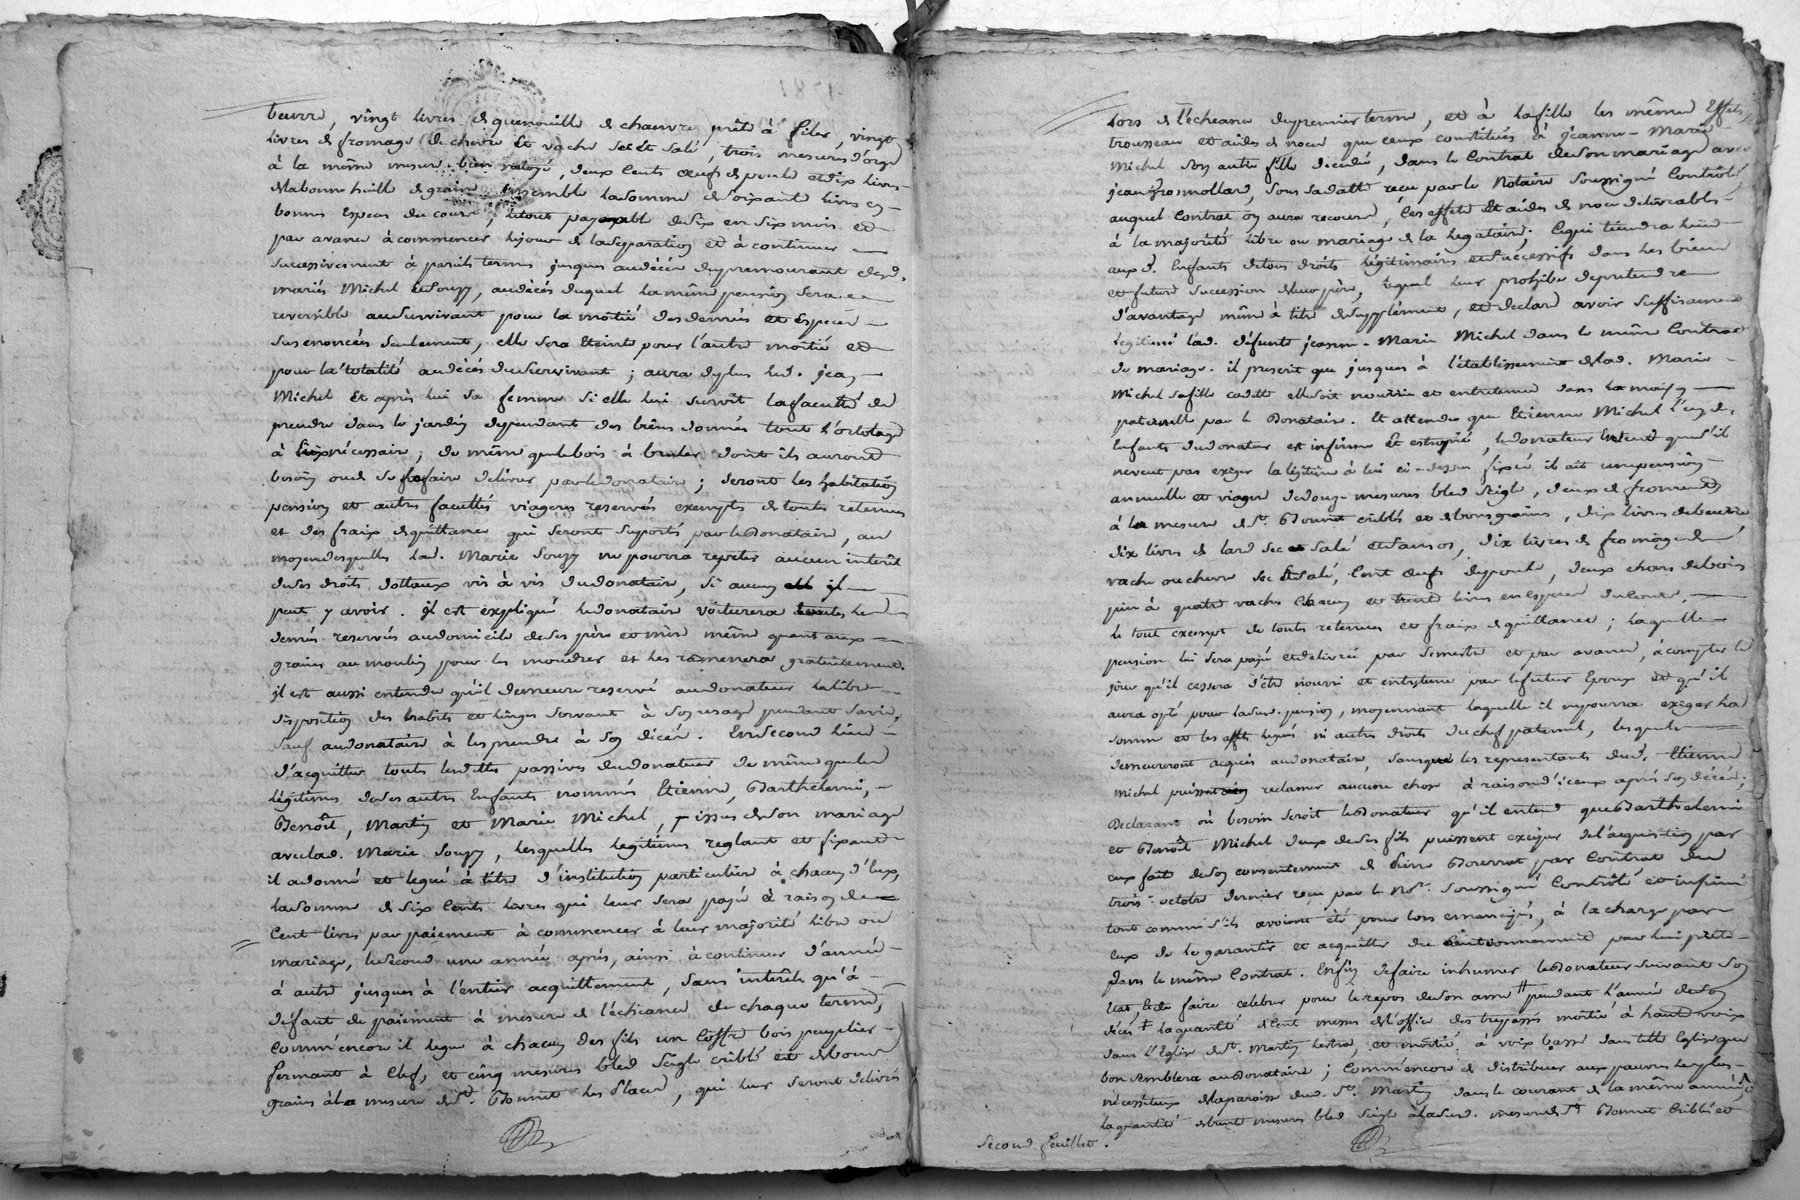 beurre, vingt livres de quenouille de chanvre prête à filer, vingt
livres de fromage de chevre et vache sec et salé, trois mesures d'orge
à la même mesure bien, deux cents œufs de poule et dix livres
de la bonne huille de grain ensemble la somme de soixante livres en
bonnes especes du cour, le tout payable de six en six mois et
par avance à commencer le jour de la separation et à continuer
successivement à pareils termes jusques au décès du premourant desd.
mariés Michel et Souzy, au décès duquel la même pension sera
reversible au survivant pour la moitié des denrées et especes
sus enoncées seulement, elle sera eteinte pour l'autre moitié et
pour la totalité au décés du survivant ; aura de plus led. jean
Michel et après lui sa femme si elle lui survit la faculté de
prendre dans le jardin dependant des biens donnés tout l'ortolage
à eux nécessaire, de même que le bois à bruler dont ils auront
besoin ou de se le faire delivrer par le donataire ; seront les habitation
pension et autres facultés viageres reservées exemptes de toutes retenues
et des fraix de quittance qui seront suportés par le donataire, au
moyen desquelles lad. Marie Souzy ne pourra repeter aucun interêt
de ses droits dottaux vis à vis du donataire, si aucun il
peut y avoir. il est expliqué le donataire voiturera les
denrées reservées au domicile de ses père et mère même quant aux
grains au moulin pour les moudres et les ramenera gratuitement.
il est aussi entendu qu'il demeure reservé au donateur la libre
disposition des habits et linges servant à son usage pendant sa vie,
sauf au donataire à les prendre à son décés. En second lieu
d'acquitter toutes les dettes passives du donateur de même que les
légitimes de ses autres enfants nommés Etienne, Barthelemi,
Benoît, Martin et Marie Michel, issus de son mariage
avec lad. Marie Souzy, lesquelles legitimes reglant et fixant
il a donné et legué à titre d'institution particuliere à chacun d'eux,
la somme de six cents livres qui leur sera payée à raison de
cent livres par paiement à commencer à leur majorité libre ou
mariage, le second une année après, ainsi à continuer d'année
à autre jusques à l'entier acquittement, sans interêts qu'à
défaut de paiement à mesure de l'échéance de chaque terme,
comm'encore il legue à chacun des fils un coffre bois peuplier
fermant à clef, et cinq mesures bled seigle criblé et de bons
grains à la mesure de St. Bonnet les Places, qui leur seront delivrés
lors de l'écheance du premier terme, et à la fille les mêmes effets
trousseau et aides de noces que ceux constitués à jeanne-Marie
Michel son autre fille decedée, dans le contrat de son mariage avec
jean, sous sa datte reçu par le Notaire soussigné controlé,
auquel contrat on aura recours, ces effets et aides de noce delivrables
à la majorité libre ou mariage de la legataire ; ce qui tiendra lieu
auxd. enfants de tous droits légitimaires et successifs dans les biens
et future succession de leur père, lequel leur prohibe de pretendre
d'avantage même à titre de supplément, et declare avoir suffisamment
legitimé lad. défunte jeanne-Marie Michel dans le même contrat
de mariage. il prescrit que jusques à l'établissement de lad. Marie
Michel sa fille cadette elle soit nourrie et entretenue dans la maison
paternelle par le donataire. Et attendu que Etienne Michel l'un des
enfants du donateur est infirme et estropié, le donateur entend que s'il
ne veut pas exiger la légitime à lui ci-dessus fixée il ait une pension
annuelle et viagere de douze mesures bled seigle, deux de froment
à la mesure de St. Bonnet criblés et de bons grains, dix livres de beurre
dix livres de lard sec et salé et sans os, dix livres de fromage de
vache ou chevre sec et salé, cent œufs de poule, deux chars de bois
pin à quatre vaches chacun et trente livres en especes du cour,
le tout exempt de toutes retenues et fraix de quittance ; laquelle
pension lui sera payée et delivrée par semestre et par avance, à compter le
jour qu'il cessera d'être nourri et entretenu par le futur epoux et qu'il
aura opté pour lad. pension, moyennant laquelle il ne pourra exiger la
somme et les effets legués ni autres droits du chef paternel, lesquels
demeureront acquis au donataire, sans que les representants dud. Etienne
Michel puissent reclamer aucune chose à raison d'iceux après son décés ;
Declarant où besoin seroit le Donateur qu'il entend que Barthelemi
et Benoît Michel deux de ses fils puissent exciper de l'acquisition par
eux faite de son consentement de Pierre par contrat du
trois octobre dernier reçu par le Nre. soussigné controlé et insinué
tout comme s'ils avoient été pour lors emancipés, à la charge par
eux de le garantir et acquitter du cautionnement par lui prété
dans le même contrat. Enfin de faire inhumer le Donateur suivant son
etat, et de faire celebrer pour le repos de son ame pendant l'année de son
décés la quantité de cent messes de l'office des trepassés moitié à haute voix
dans l'Eglise de St. Martin Lestra, et moitié à voix basse dans telle Eglise que
bon semblera au Donataire ; comm'encore de distribuer aux pauvres les plus
nécessiteux de la paroisse dud. St. Martin dans le courant de la même année,
la quantité de trente mesures bled seigle à lad. mesure de St. Bonnet criblé et
second feuillet.